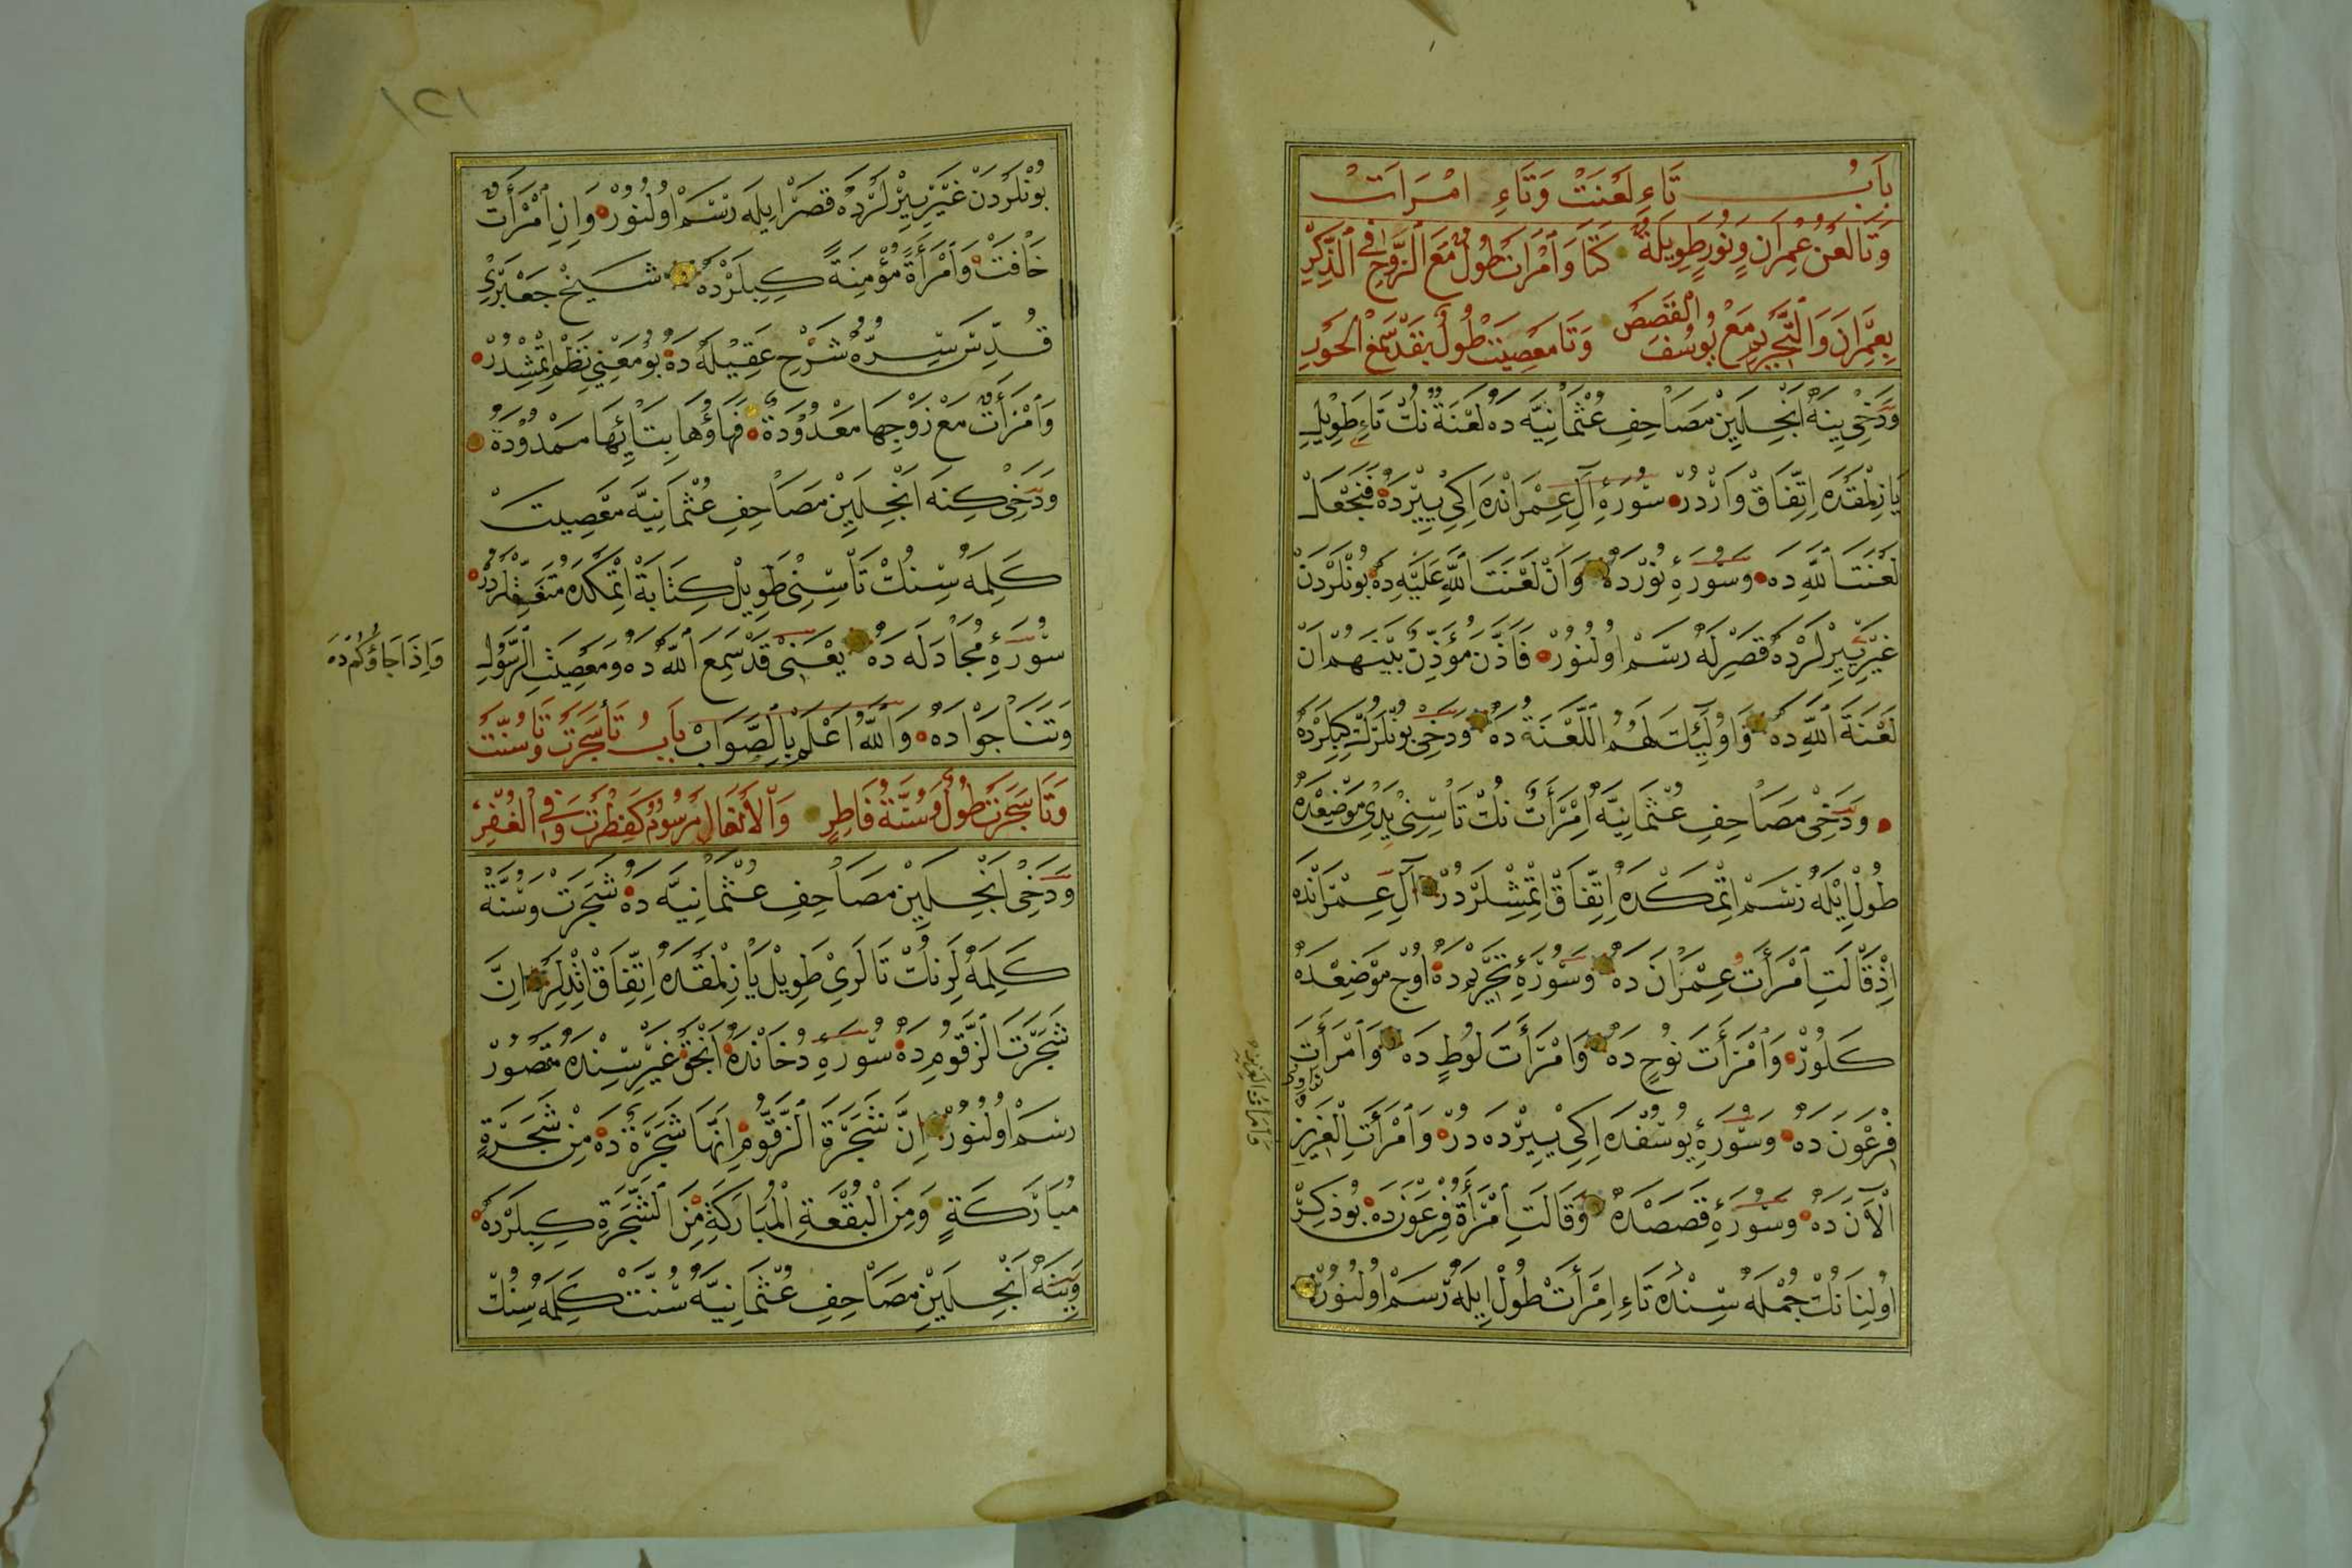 بَابُ تَاءِ لَعْنَتْ وَتَاءِ امْرَاَتْ
وَتَا لَعْنُ عِمْرَانٍ وَنُورٍ طَوِيلَةٌ كَتَا وَامْرَاَتُ طُولٌ مَعَ الزَّوْجِ فِي الذِّكْرِ
بِعِمْرَانَ وَالتَّحْرِيمِ مَعْ يُوسُفَ وَالْقَصَصْ وَتَا مَعْصِيَتْ طُولٌ بِقَدْ سَمِعْ
وَدَخِي يِنَه اَنْجِلَيِنْ مَصَاحِفِ عُثْمَانِيَّه دَه لَعْنَةُ نُكْ تَاءِ طَوِيلِ
يَازِلْمَقْدَه اِتِّفَاقْ وَارْدُرْ سُورَهِٔ آلِ عِمْرَانْدَه اِكِي يِيرْدَه فَنَجْعَلْ
لَعْنَتَ اللّٰهِ دَه وَسُورَهِٔ نُورْدَه وَاَنَّ لَعْنَتَ اللّٰهِ عَلَيْهِ دَه بُونْلَرْدَنْ
غَيْرِ يِيرْلَرْدَه قَصْرِلَه رَسْم اُولُنُورْ فَاَذَّنَ مُؤَذِّنٌ بَيْنَهُمْ اَنْ
لَعْنَةَ اللّٰهِ دَه وَاُولٰٓئِكَ لَهُمُ اللَّعْنَةُ دَه وَدَخِي بُونْلَرُكْ كِيبِلَرْدَه
وَدَخِي مَصَاحِفِ عُثْمَانِيَّه اِمْرَأَتْ نُكْ تَاسِنِي يَدِي مَوْضِعْدَه
طُولْ اِيلَه رَسْم اِتْمَكْدَه اِتِّفَاقْ اِتْمِشْلَرْدُرْ آلِ عِمْرَانْدَه
اِذْ قَالَتِ امْرَأَتُ عِمْرَانَ دَه وَسُورَهِٔ تَحْرِيمْدَه اُوچْ مَوْضِعْدَه
كَلُورْ وَامْرَأَتَ نُوحٍ دَه وَامْرَأَتَ لُوطٍ دَه وَامْرَأَتَ
فِرْعَوْنَ دَه وَسُورَهِٔ يُوسُفْدَه اِكِي يِيرْدَه دُرْ وَامْرَأَتِ الْعَزِيزِ
الْاٰنَ دَه وَسُورَهِٔ قَصَصْدَه وَقَالَتِ امْرَأَةُ فِرْعَوْنَ دَه بُو ذِكِرْ
اُولِنَانُكْ جُمْلَه سِنْدَه تَاءِ اِمْرَأَتْ طُولْ اِيلَه رَسْم اُولُنُورْ
١٢١
بُونْلَرْدَنْ غَيْرِ يِيرْلَرْدَه قَصْرْ اِيلَه رَسْم اُولُنُورْ وَاِنِ امْرَأَةٌ
خَافَتْ وَامْرَأَةً مُؤْمِنَةً كِيبِلَرْدَه شَيْخْ جَعْبَرِي
قُدِّسَ سِرُّهُ شَرْحِ عَقِيلَه دَه بُو مَعْنِي نَظْم اِتْمِشْدُرْ
وَامْرَأَتٌ مَعْ زَوْجِهَا مَعْدُودَةٌ فَهَاؤُهَا بِتَائِهَا مَمْدُودَةٌ
وَدَخِي كِنَه اَنْجِلَيِنْ مَصَاحِفِ عُثْمَانِيَّه مَعْصِيَتْ
كَلِمَه سِنُكْ تَاسِنِي طَوِيلْ كِتَابَةْ اِتْمَكْدَه مُتَّفِقْلَرْدُرْ
سُورَهِٔ مُجَادَلَه دَه يَعْنِي قَدْ سَمِعَ اللّٰهُ دَه وَمَعْصِيَتِ الرَّسُولِ
وَاِذَا جَاؤُكَ دَه
وَتَنَاجَوْا دَه وَاللّٰهُ اَعْلَمُ بِالصَّوَابْ بَابُ تَا شَجَرَتْ وَتَا سُنَّتْ
وَتَا شَجَرَتْ طُولٌ وَسُنَّةُ فَاطِرٍ وَالْاَنْفَالِ مَرْسُومٌ كَفِطْرَتَ وَفِي الْغُفِرْ
وَدَخِي اَنْجِلَيِنْ مَصَاحِفِ عُثْمَانِيَّه دَه شَجَرَتْ وَسُنَّةْ
كَلِمَه لَرِنُكْ تَا لَرِي طَوِيلْ يَازِلْمَقْدَه اِتِّفَاقْ اِنَّ
شَجَرَتَ الزَّقُّومِ دَه سُورَهِٔ دُخَانْدَه اَنْجَقْ غَيْرِسِنْدَه مَقْصُورْ
رَسْم اُولُنُورْ اِنَّ شَجَرَةَ الزَّقُّومِ اِنَّهَا شَجَرَةٌ دَه مِنْ شَجَرَةٍ
مُبَارَكَةٍ وَمِنَ الْبُقْعَةِ الْمُبَارَكَةِ مِنَ الشَّجَرَةِ كِيبِلَرْدَه
وَيِنَه اَنْجِلَيِنْ مَصَاحِفِ عُثْمَانِيَّه سُنَّتْ كَلِمَه سِنُكْ